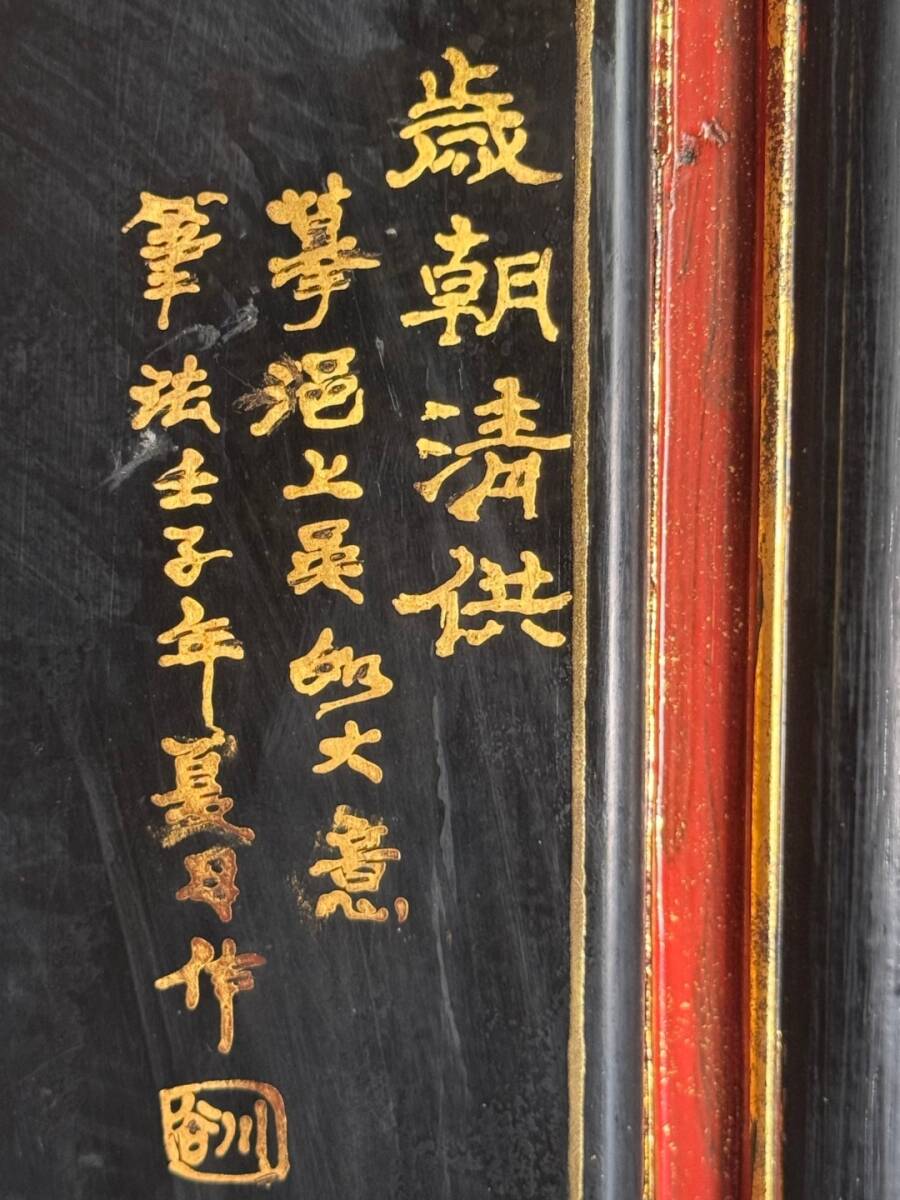 歲朝清供
摹浥上吳如大意
筆法壬子年夏日作